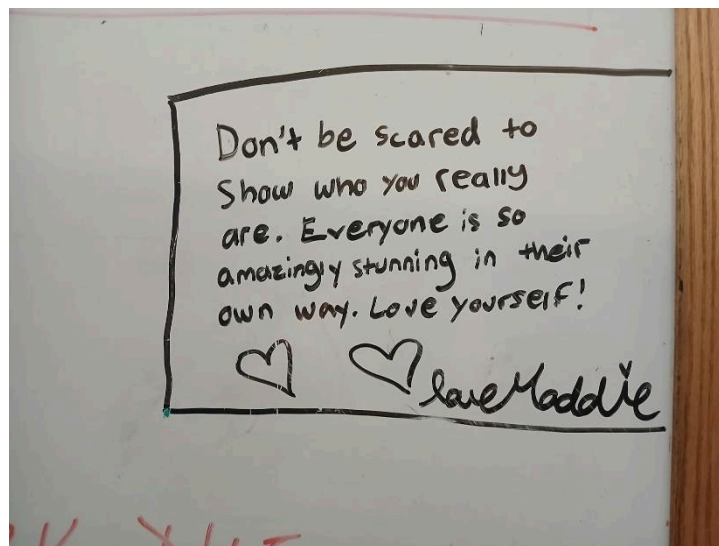 Don't be scared to
Show who you really
are. Everyone is so
amazingly stunning in their
own way. Love yourself!
love Maddie